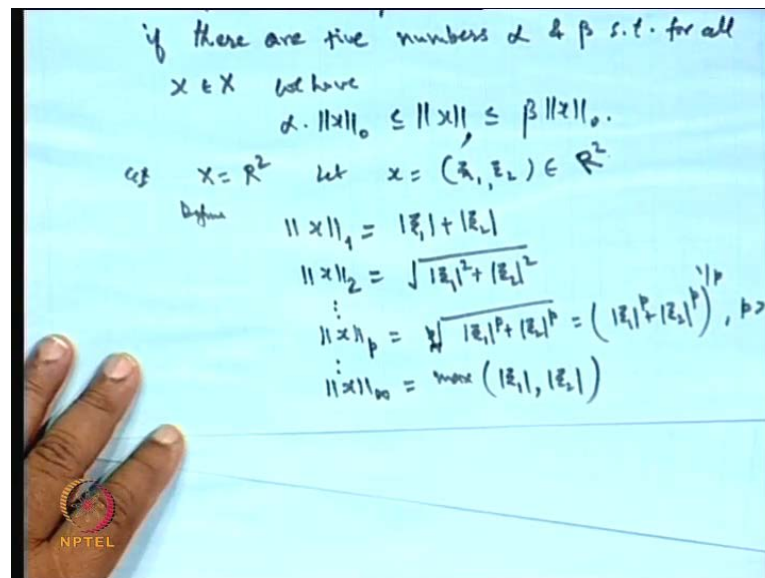 if there are +ive numbers α & β s.t. for all
x ∈ X we have
α. ||x||₀ ≤ ||x|| ≤ β ||x||₀.
X = R² Let x = (ξ₁, ξ₂) ∈ R²
Define
||x||₁ = |ξ₁| + |ξ₂|
||x||₂ = √(|ξ₁|² + |ξ₂|²)
⋮
||x||ₚ = ᵖ√(|ξ₁|ᵖ + |ξ₂|ᵖ) = (|ξ₁|ᵖ + |ξ₂|ᵖ)^(1/p), p>
⋮
||x||∞ = max (|ξ₁|, |ξ₂|)
NPTEL